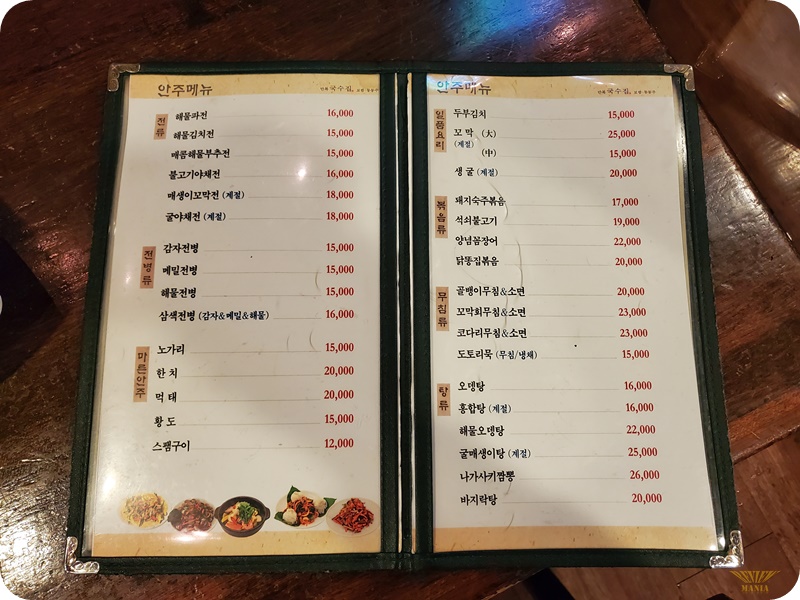 안주메뉴
국수집
전류
해물파전 16,000
해물김치전 15,000
매콤해물부추전 15,000
불고기야채전 16,000
매생이꼬막전 (계절) 18,000
굴야채전 (계절) 18,000
전병류
감자전병 15,000
메밀전병 15,000
해물전병 15,000
삼색전병 (감자&메밀&해물) 16,000
마른안주
노가리 15,000
한치 20,000
먹태 20,000
황도 15,000
스팸구이 12,000
안주메뉴
국수집
일품요리
두부김치 15,000
꼬막 (大) 25,000
(계절)
(中) 15,000
생굴 (계절) 20,000
볶음류
돼지숙주볶음 17,000
석쇠불고기 19,000
양념꼼장어 22,000
닭똥집볶음 20,000
무침류
골뱅이무침&소면 20,000
꼬막회무침&소면 23,000
코다리무침&소면 23,000
도토리묵 (무침/냉채) 15,000
탕류
오뎅탕 16,000
홍합탕 (계절) 16,000
해물오뎅탕 22,000
굴매생이탕 (계절) 25,000
나가사키짬뽕 26,000
바지락탕 20,000
MANIA